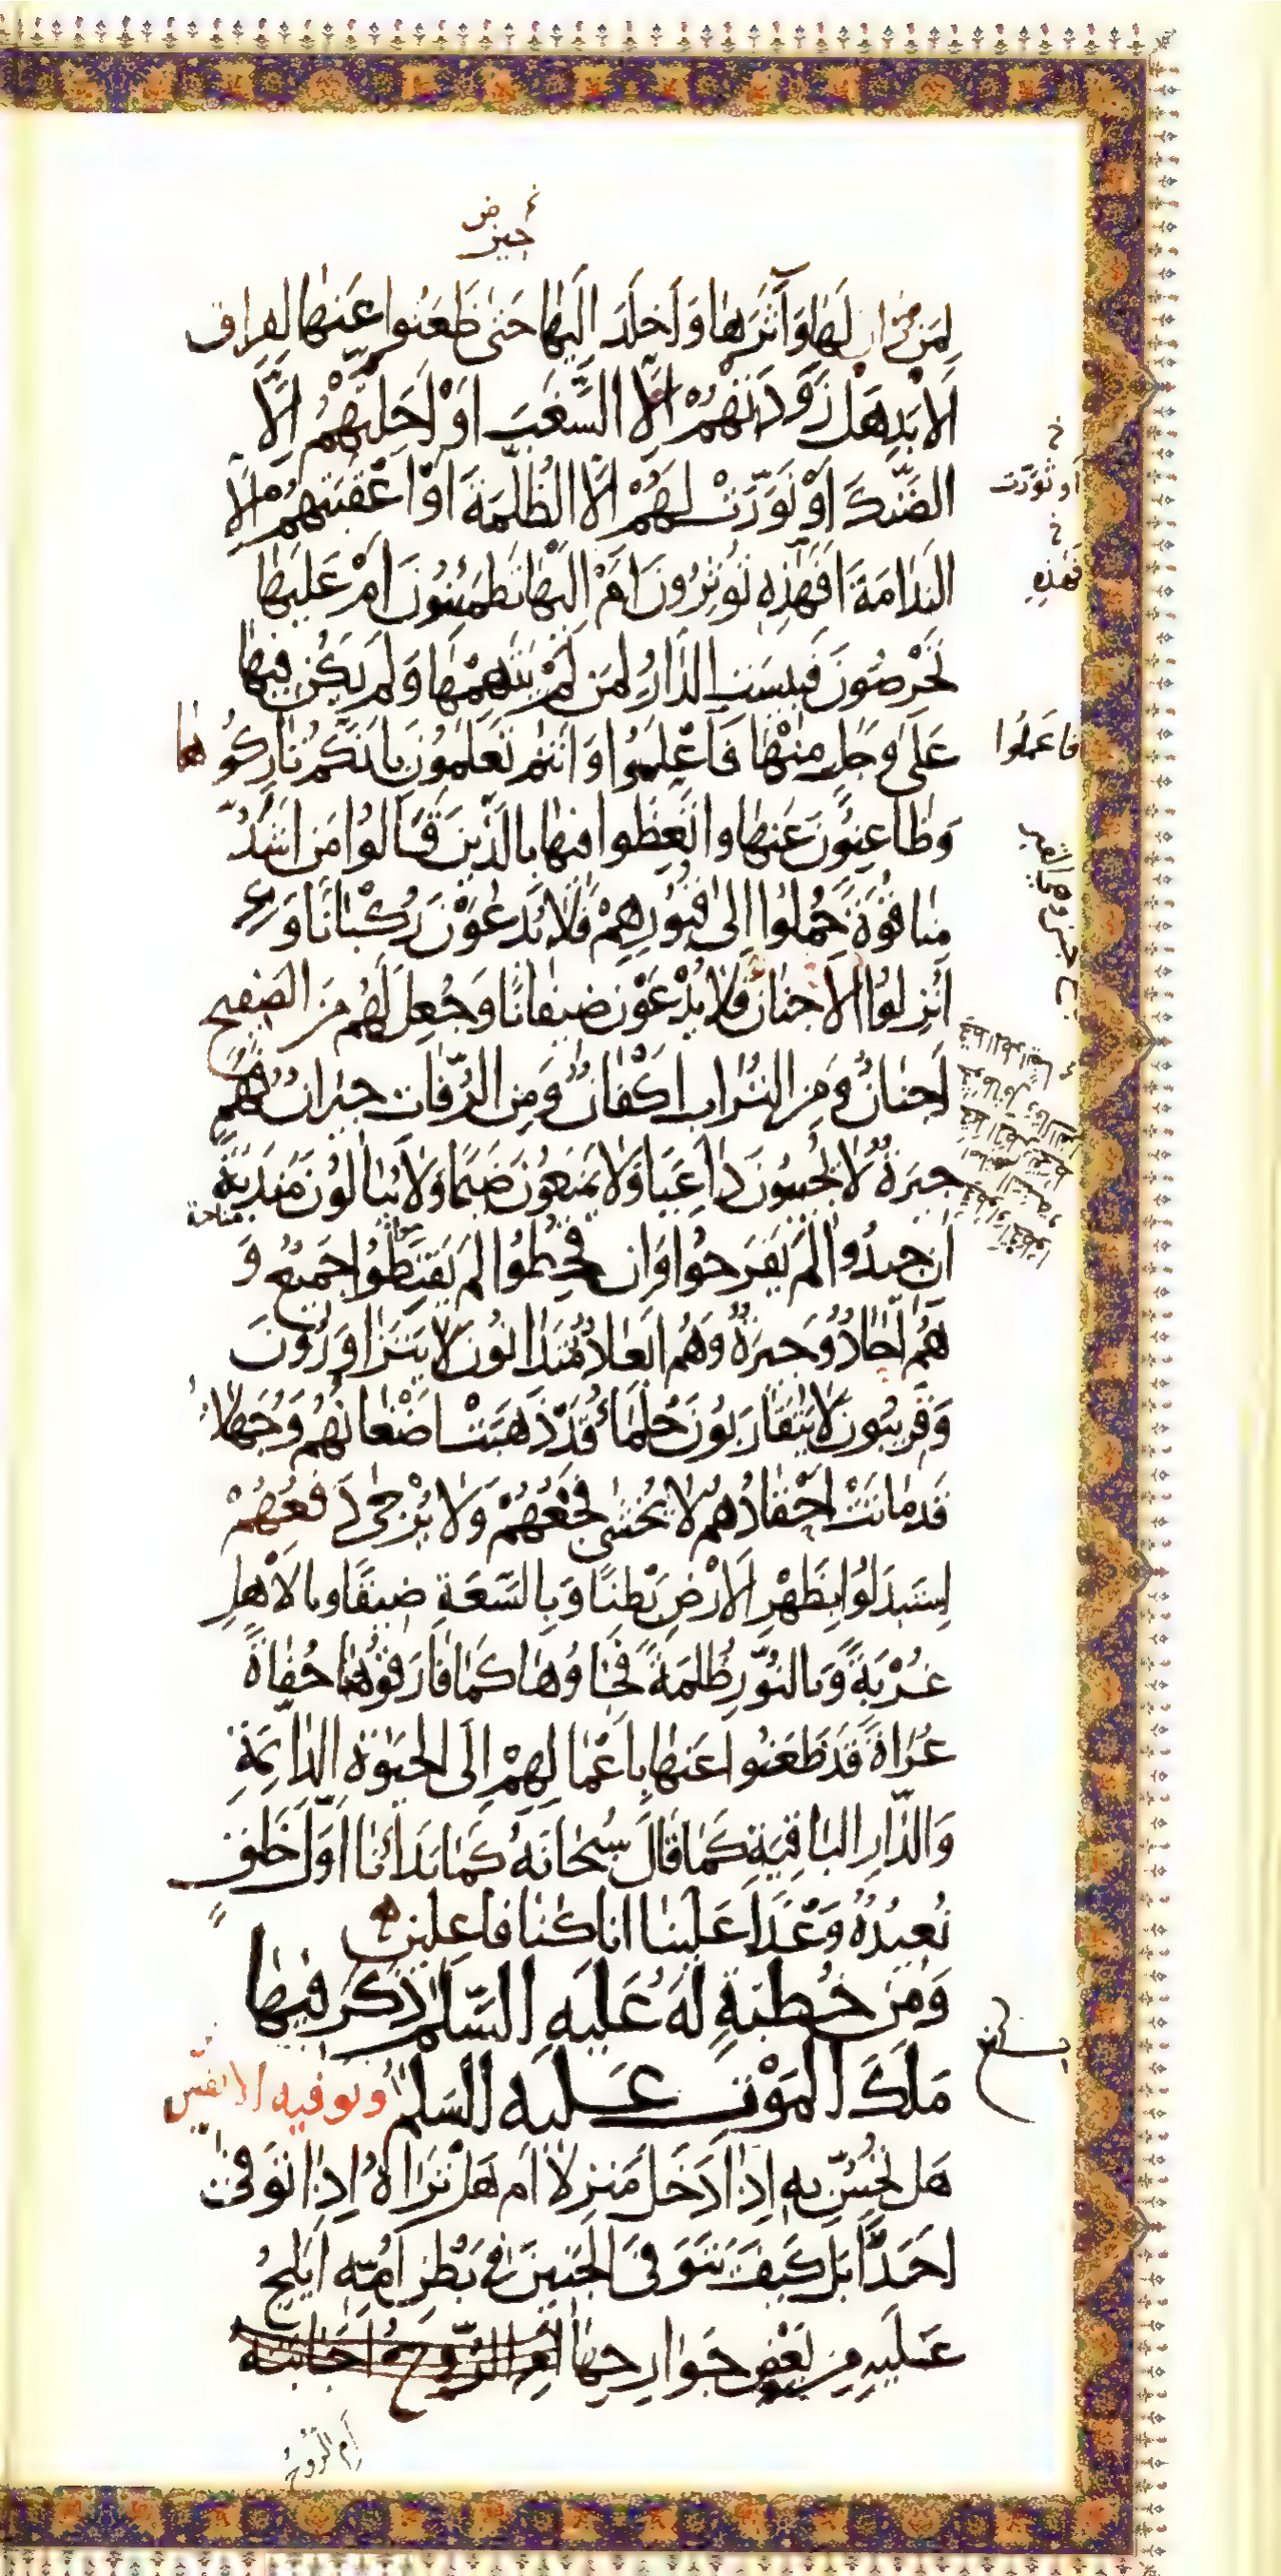 لِمَنْ دان لَهٰا وَآثَرَهٰا وَاَخلَدَ اِلَيْهٰا حَتّٰى ظَعَنُوا عَنهٰا لفِراق
الاَبَدِ هَل زَوَّدَتْهُمْ اِلَّا السَّغَبَ اَوْ اَحَلَّتْهُمْ اِلَّا
الضَّنْكَ اَوْ نَوَّرَتْ لَهُمْ اِلَّا الظُّلْمَةَ اَوْ اَعْقَبَتْهُمْ اِلَّا
النَدٰامَةَ اَفَهٰذِهِ تُؤثِرُونَ اَمْ اِلَيْهٰا تَطمَئِنُّونَ اَمْ عَلَيهٰا
تَحْرِصُونَ فَبِئسَتِ الدّٰارُ لِمَن لَمْ يَتَّهِمْهٰا وَلَم يَكُن فِيهٰا
عَلىٰ وَجَلٍ مِنْهٰا فَاعْلِمَوُا وَاَنتُم تَعلَمُونَ بِاَنَّكُم تٰارِكُوهٰا
وَظٰاعِنُونَ عَنهٰا وَاتَّعِظُوا فيهٰا بِالَّذينَ قٰالُوا مَن اَشَدُّ
مِنّا قُوَّةً حُمِلُوا اِلىٰ قُبُورِهِمْ فَلٰا يُدعَوْنَ رُكْبٰانًا وَ
اُنزِلُوا الاَجنٰانَ فَلا يُدْعَوْنَ ضِيفانًا وَجُعِلَ لَهُم مِنَ الصَفيحِ
اَجنٰانٌ وَمِنَ التُرابِ اَكْفٰانٌ وَمِنَ الرُّفاتِ جيرانٌ فَهُم
جيرَةٌ لا يُجيبُونَ دٰاعِيًا وَلا يَمنَعُونَ ضَيمًا وَلا يُبالُونَ مَندَبَةً
اِن جيدُوا لَمْ يَفرَحُوا وَاِن قُحِطُوا لَم يَقنَطُوا جَميعٌ وَ
هُم آحٰادٌ وَجيرَةٌ وَهُم اَبعادٌ مُتَدانُونَ لا يَتَزاوَرُونَ
وَقَريبُونَ لا يَتَقٰارَبُونَ حُلَمٰاءُ قَد ذَهَبَتْ اَضْغانُهُم وَجُهَلاءُ
قَد مٰاتَتْ اَحْقٰادُهُم لا يُخشٰى فَجْعُهُمْ وَلا يُرْجٰى دَفعُهُمْ
اِستَبدَلُوا بِظَهْرِ الاَرْضِ بَطْنًا وَبِالسَّعَةِ ضيقًا وَبِالاَهلِ
غُرْبَةً وَبِالنُّورِ ظُلمَةً فَجٰاؤُهٰا كَمٰا فٰارَقُوهٰا حُفٰاةً
عُراةً قَد ظَعَنُوا عَنهٰا بِاَعْمٰالِهِمْ اِلَى الحَيٰوةِ الدّٰائِمَةِ
وَالدّٰارِ البٰاقِيَةِ كَمٰا قٰالَ سُبحٰانَهُ كَمٰا بَدَأنٰا اَوَّلَ خَلقٍ
نُعيدُهُ وَعْدًا عَلَيْنٰا اِنّا كُنّا فاعِلينَ
وَمِن خُطبَةٍ لَهُ عَلَيهِ السَّلٰم ذَكَرَ فيهٰا
مَلَكَ المَوْتِ عَلَيهِ السَلٰم وتوفيه الانفس
هَل تُحِسُّ بِهِ اِذا دَخَلَ مَنزِلًا اَم هَل تَراهُ اِذٰا تَوَفّىٰ
اَحَدًا بَل كَيفَ يَتَوَفَّى الجَنينَ فى بَطْنِ اُمِّهِ اَيَلِجُ
عَلَيهِ مِن بَعْضِ جَوارِحِهٰا اَمِ الرّوحُ اَجٰابَتْهُ
اَم الرّوحُ
اَو نَوَّرَت
فَهٰذِهِ
فاعمَلُوا
مناحة